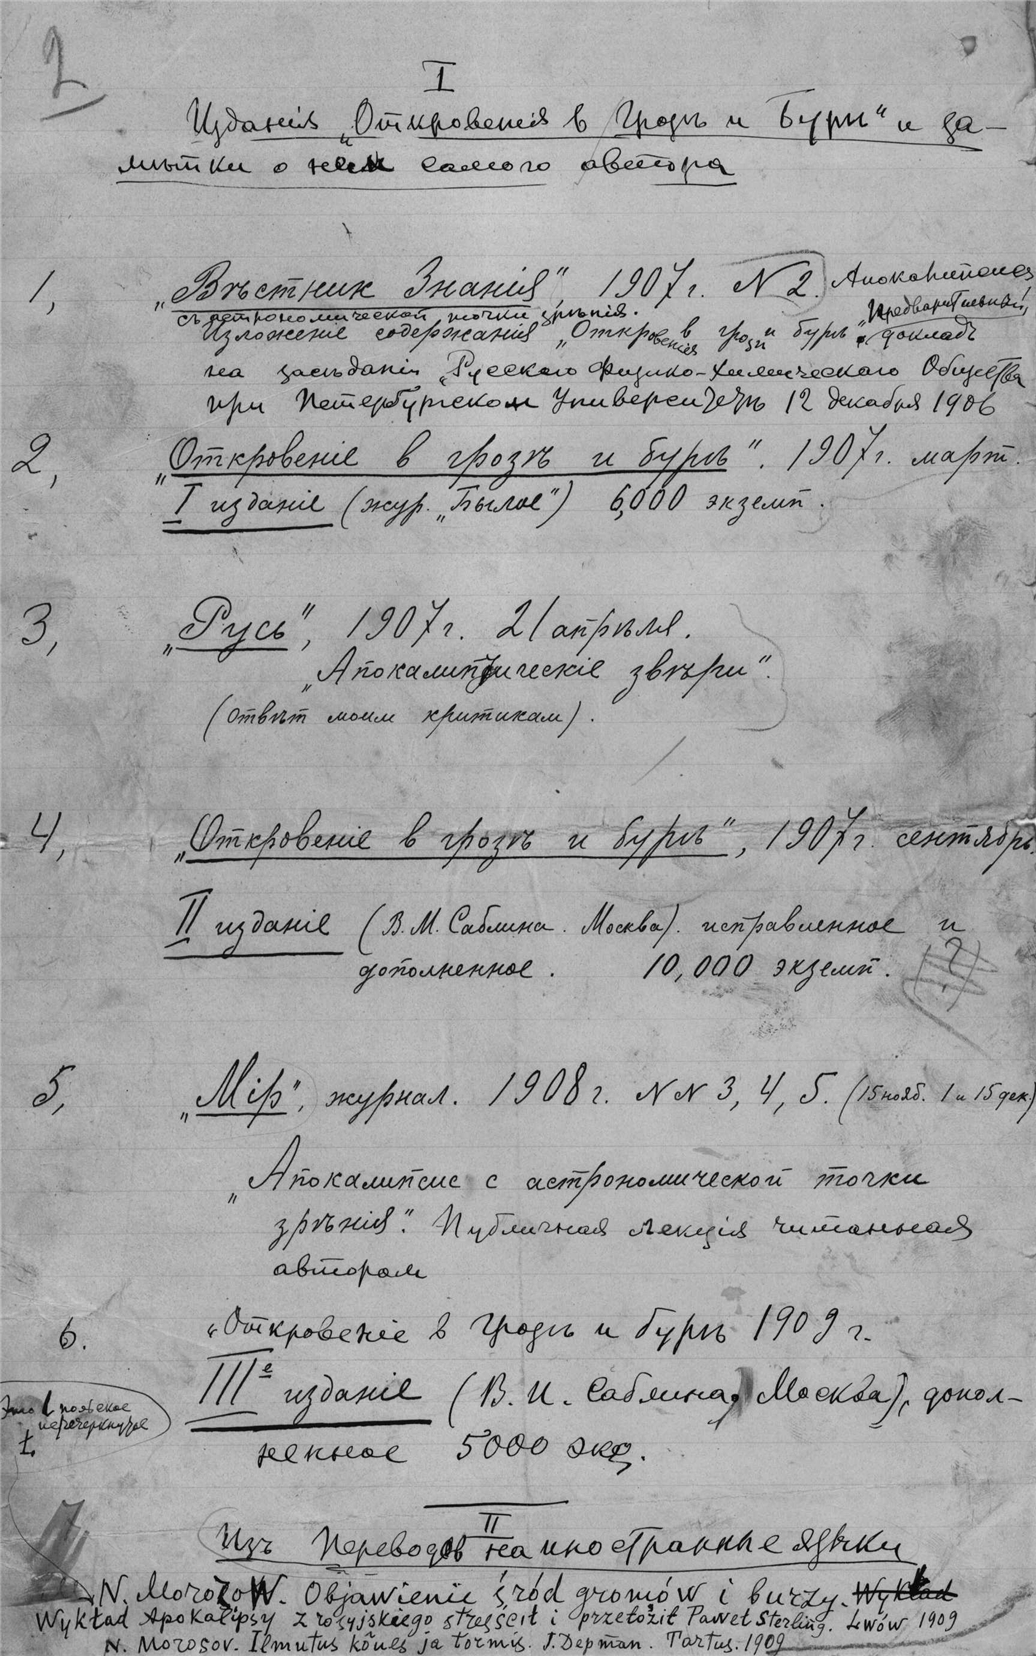 2
I
Изданія „Откровенія в грозѣ и бурѣ" и за-
мѣтки о нем самого автора
1, „Вѣстник Знанія", 1907 г. N 2. Апокалипсис
съ астрономической точки зрѣнія. Предварительный
Изложеніе содержанія „Откровенія в грозѣ и бурѣ". докладъ
на засѣданіи „Русскаго Физико-Химическаго Общества
при Петербургском Университетѣ 12 декабря 1906
2, „Откровеніе в грозѣ и бурѣ". 1907 г. март.
I изданіе (жур. „Былое") 6,000 экземп.
3, „Русь", 1907 г. 21 апрѣля.
„Апокалиптическіе звѣри".
(Отвѣт моим критикам).
4, „Откровеніе в грозѣ и бурѣ", 1907 г. сентябрь.
II изданіе (В. М. Саблина. Москва). исправленное и
дополненное. 10,000 экземп. (?)
5, „Мір", журнал. 1908 г. NN 3, 4, 5. (15 нояб. 1 и 15 дек.)
„Апокалипсис с астрономической точки
зрѣнія". Публичная лекція читанная
автором
6. „Откровеніе в грозѣ и бурѣ 1909 г.
IIIе изданіе (В. И. Саблина, Москва), допол-
ненное 5000 экз.
Это польское
перечеркнутое
II
Изъ Переводов на иностранные языки
N. Morozow. Objawienie śród gromów i burzy. Wykład
Wykład Apokalipsy z rosyjskiego streścił i przełożił Paweł Sterling. Lwów 1909
N. Morosov. Ilmutus kõues ja tormis. J. Depman. Tartus. 1909